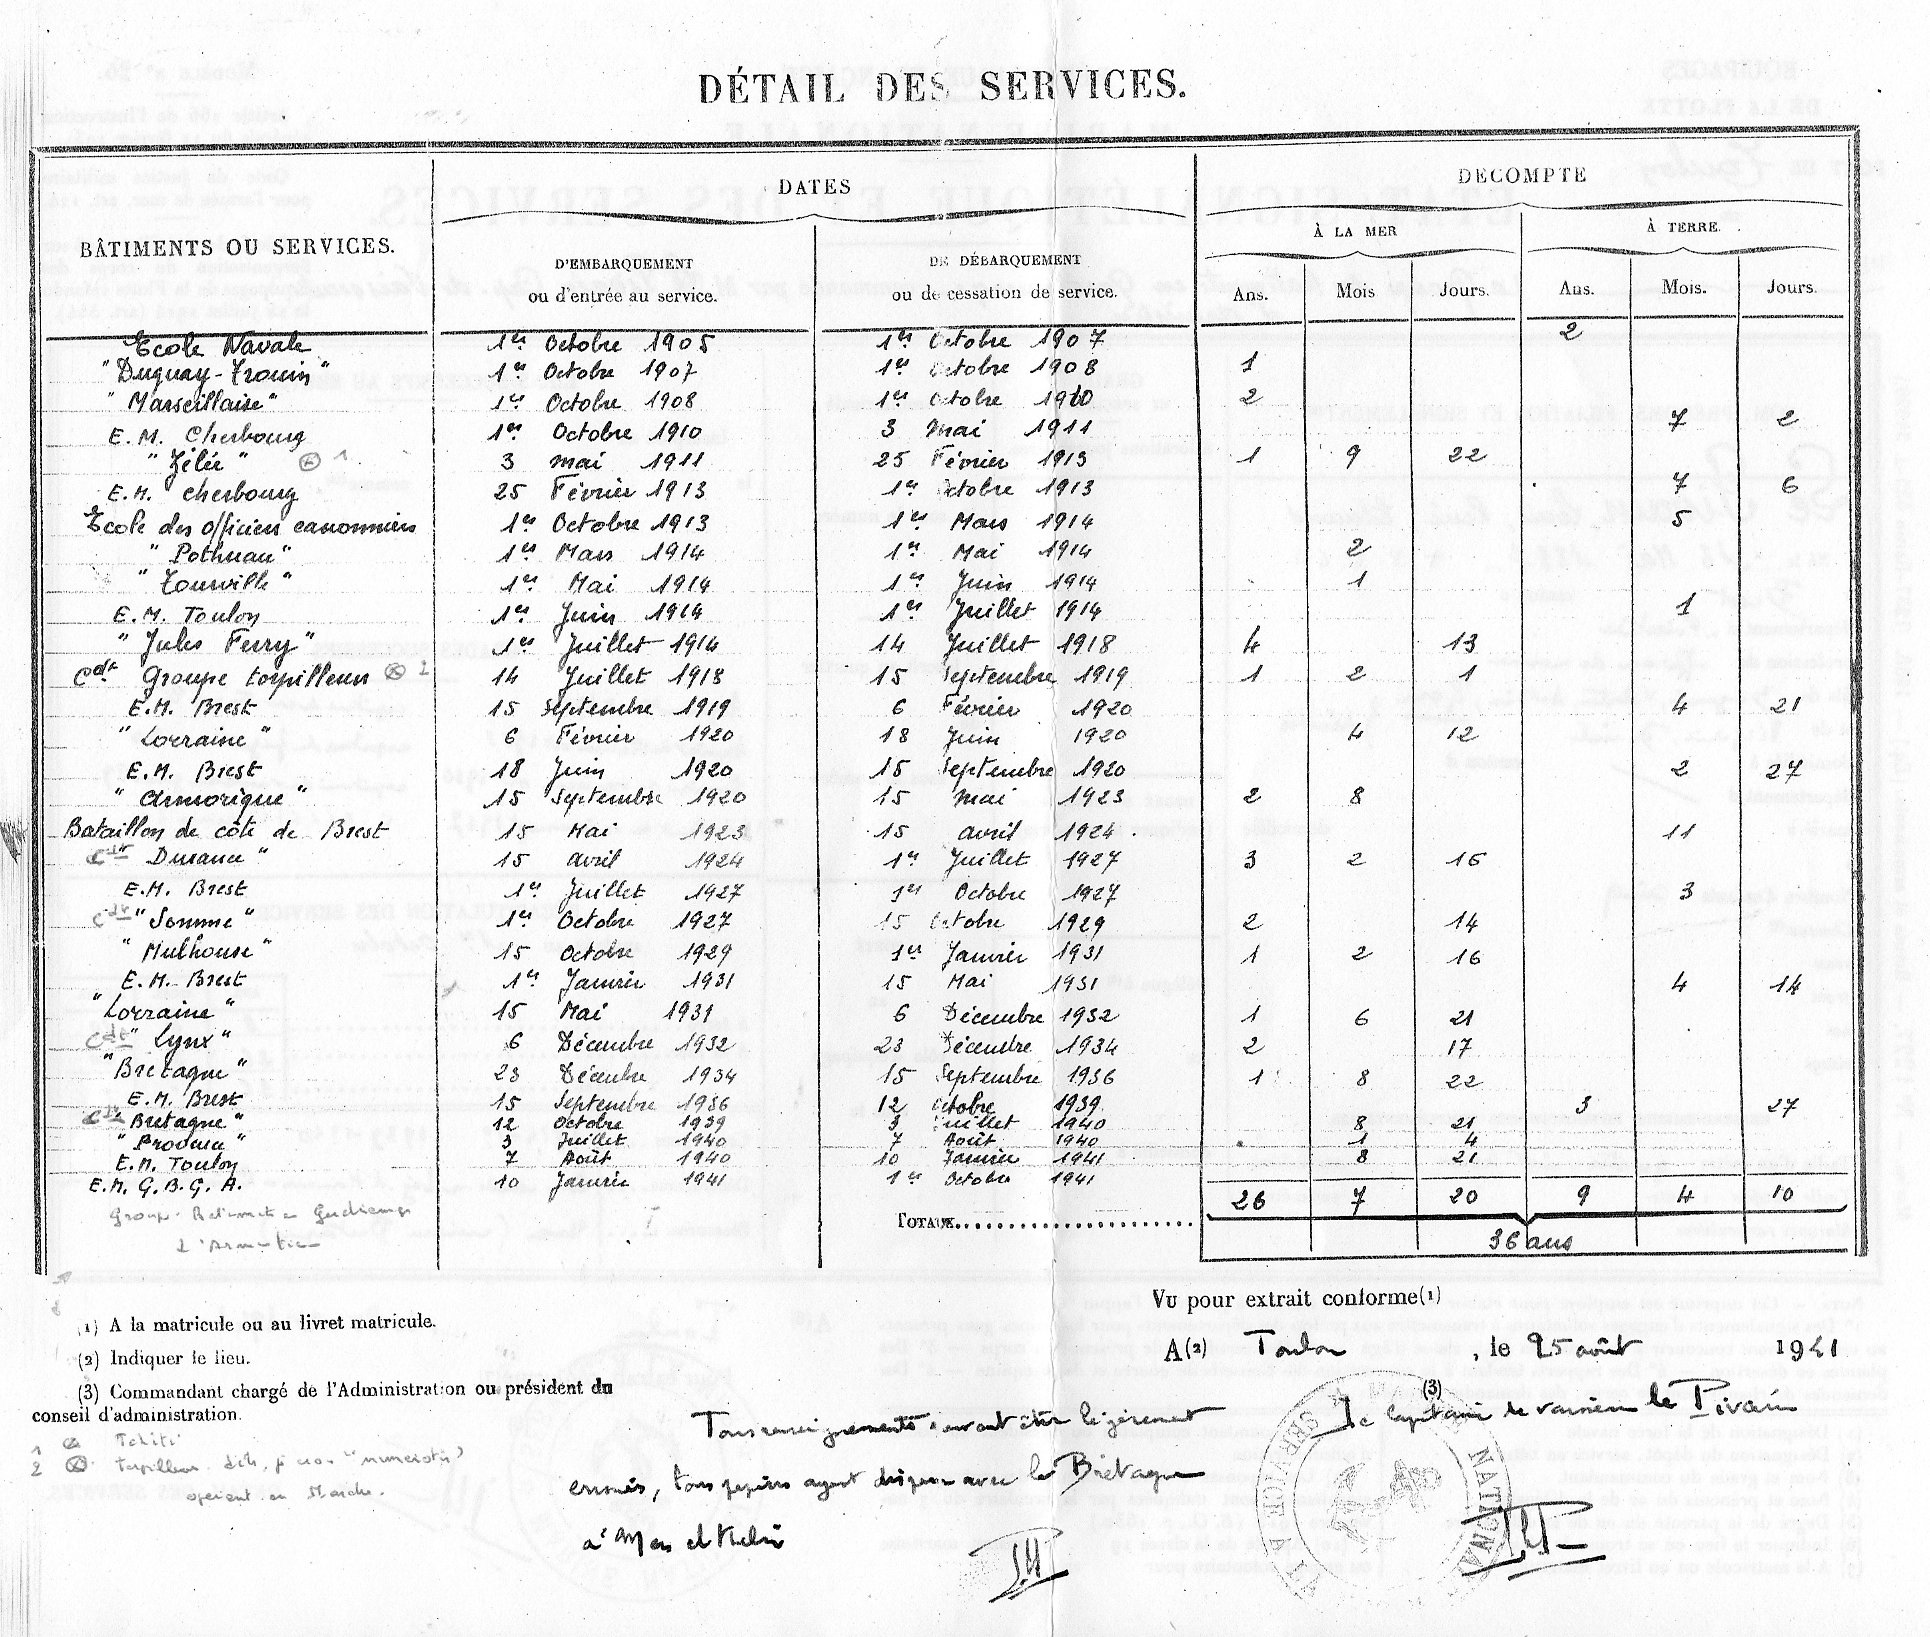 DÉTAIL DES SERVICES.
BÂTIMENTS OU SERVICES. DATES DÉCOMPTE
D'EMBARQUEMENT ou d'entrée au service. DE DÉBARQUEMENT ou de cessation de service. À LA MER À TERRE.
Ans. Mois Jours. Ans. Mois. Jours.
Ecole Navale 1er Octobre 1905 1er Octobre 1907 2
"Duguay-Trouin" 1er Octobre 1907 1er Octobre 1908 1
"Marseillaise" 1er Octobre 1908 1er Octobre 1910 2
E.M. Cherbourg 1er Octobre 1910 3 Mai 1911 7 2
"Zélée" 1 3 Mai 1911 25 Février 1913 1 9 22
E.M. Cherbourg 25 Février 1913 1er Octobre 1913 7 6
Ecole des officiers canonniers 1er Octobre 1913 1er Mars 1914 5
"Pothuau" 1er Mars 1914 1er Mai 1914 2
"Tourville" 1er Mai 1914 1er Juin 1914 1
E.M. Toulon 1er Juin 1914 1er Juillet 1914 1
"Jules Ferry" 1er Juillet 1914 14 Juillet 1918 4 13
Cdt Groupe torpilleurs 2 14 Juillet 1918 15 Septembre 1919 1 2 1
E.M. Brest 15 Septembre 1919 6 Février 1920 4 21
"Lorraine" 6 Février 1920 18 Juin 1920 4 12
E.M. Brest 18 Juin 1920 15 Septembre 1920 2 27
"Armorique" 15 Septembre 1920 15 Mai 1923 2 8
Bataillon de côte de Brest 15 Mai 1923 15 Avril 1924 11
Cdt Durance" 15 Avril 1924 1er Juillet 1927 3 2 16
E.M. Brest 1er Juillet 1927 1er Octobre 1927 3
Cdt "Somme" 1er Octobre 1927 15 Octobre 1929 2 14
"Mulhouse" 15 Octobre 1929 1er Janvier 1931 1 2 16
E.M. Brest 1er Janvier 1931 15 Mai 1931 4 14
"Lorraine" 15 Mai 1931 6 Décembre 1932 1 6 21
Cdt "Lynx" 6 Décembre 1932 23 Décembre 1934 2 17
"Bretagne" 23 Décembre 1934 15 Septembre 1936 1 8 22
E.M. Brest 15 Septembre 1936 12 Octobre 1939 3 27
Cdt Bretagne" 12 Octobre 1939 3 Juillet 1940 8 21
"Provence" 3 Juillet 1940 7 Août 1940 1 4
E.M. Toulon 7 Août 1940 10 Janvier 1941 8 21
E.M. G.B.G.A. 10 Janvier 1941 1er Octobre 1941
Groupe Batiments Gardiennage
d'Armistice
TOTAUX 26 7 20 9 4 10
36 ans
(1) A la matricule ou au livret matricule.
(2) Indiquer le lieu.
(3) Commandant chargé de l'Administration ou président du
conseil d'administration.
1 Tahiti
2 torpilleurs
opérant en Manche.
Vu pour extrait conforme(1)
A(2) Toulon, le 25 août 1941
(3)
Le Capitaine de vaisseau le Pivain
Tous renseignements pouvant être légèrement
erronés, tous papiers ayant disparu avec le Bretagne
à Mers el Kebir
MARINE NATIONALE
SERVICE A LA